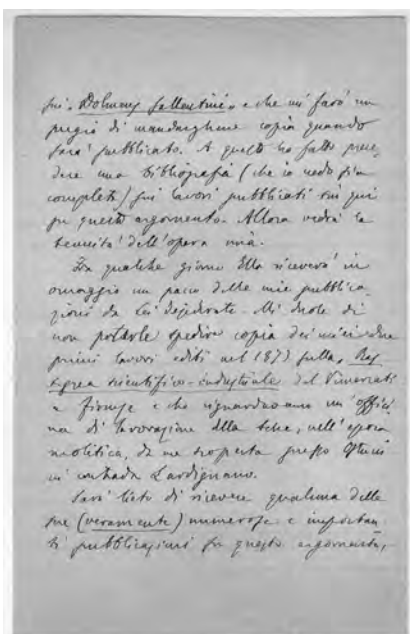 sui "Dolmens Sallentini" e che mi farò un
pregio di mandarghene copia quando
sarà pubblicato. A questo ho fatto prece-
dere una bibliografia (che io credo
completa) sui lavori pubblicati sin qui
su questo argomento. Allora vedrà la
dell'opera mia.
Fra qualche giorno Ella riceverà in
omaggio un pacco delle mie pubblica-
zioni da Lei desiderate. Mi duole di
non poterle spedire copia dei miei due
primi lavori editi nel 1873 sulla Ras-
segna scientifico-industriale del Vimercati
a Firenze e che riguardavano un'offici-
na di lavorazione della selce, nell'epoca
neolitica, da me scoperta presso Ostuni
in contrada Lardignano.
Sarò lieto di ricevere qualcuna delle
sue (veramente) numerose e importan-
ti pubblicazioni su questo argomento,